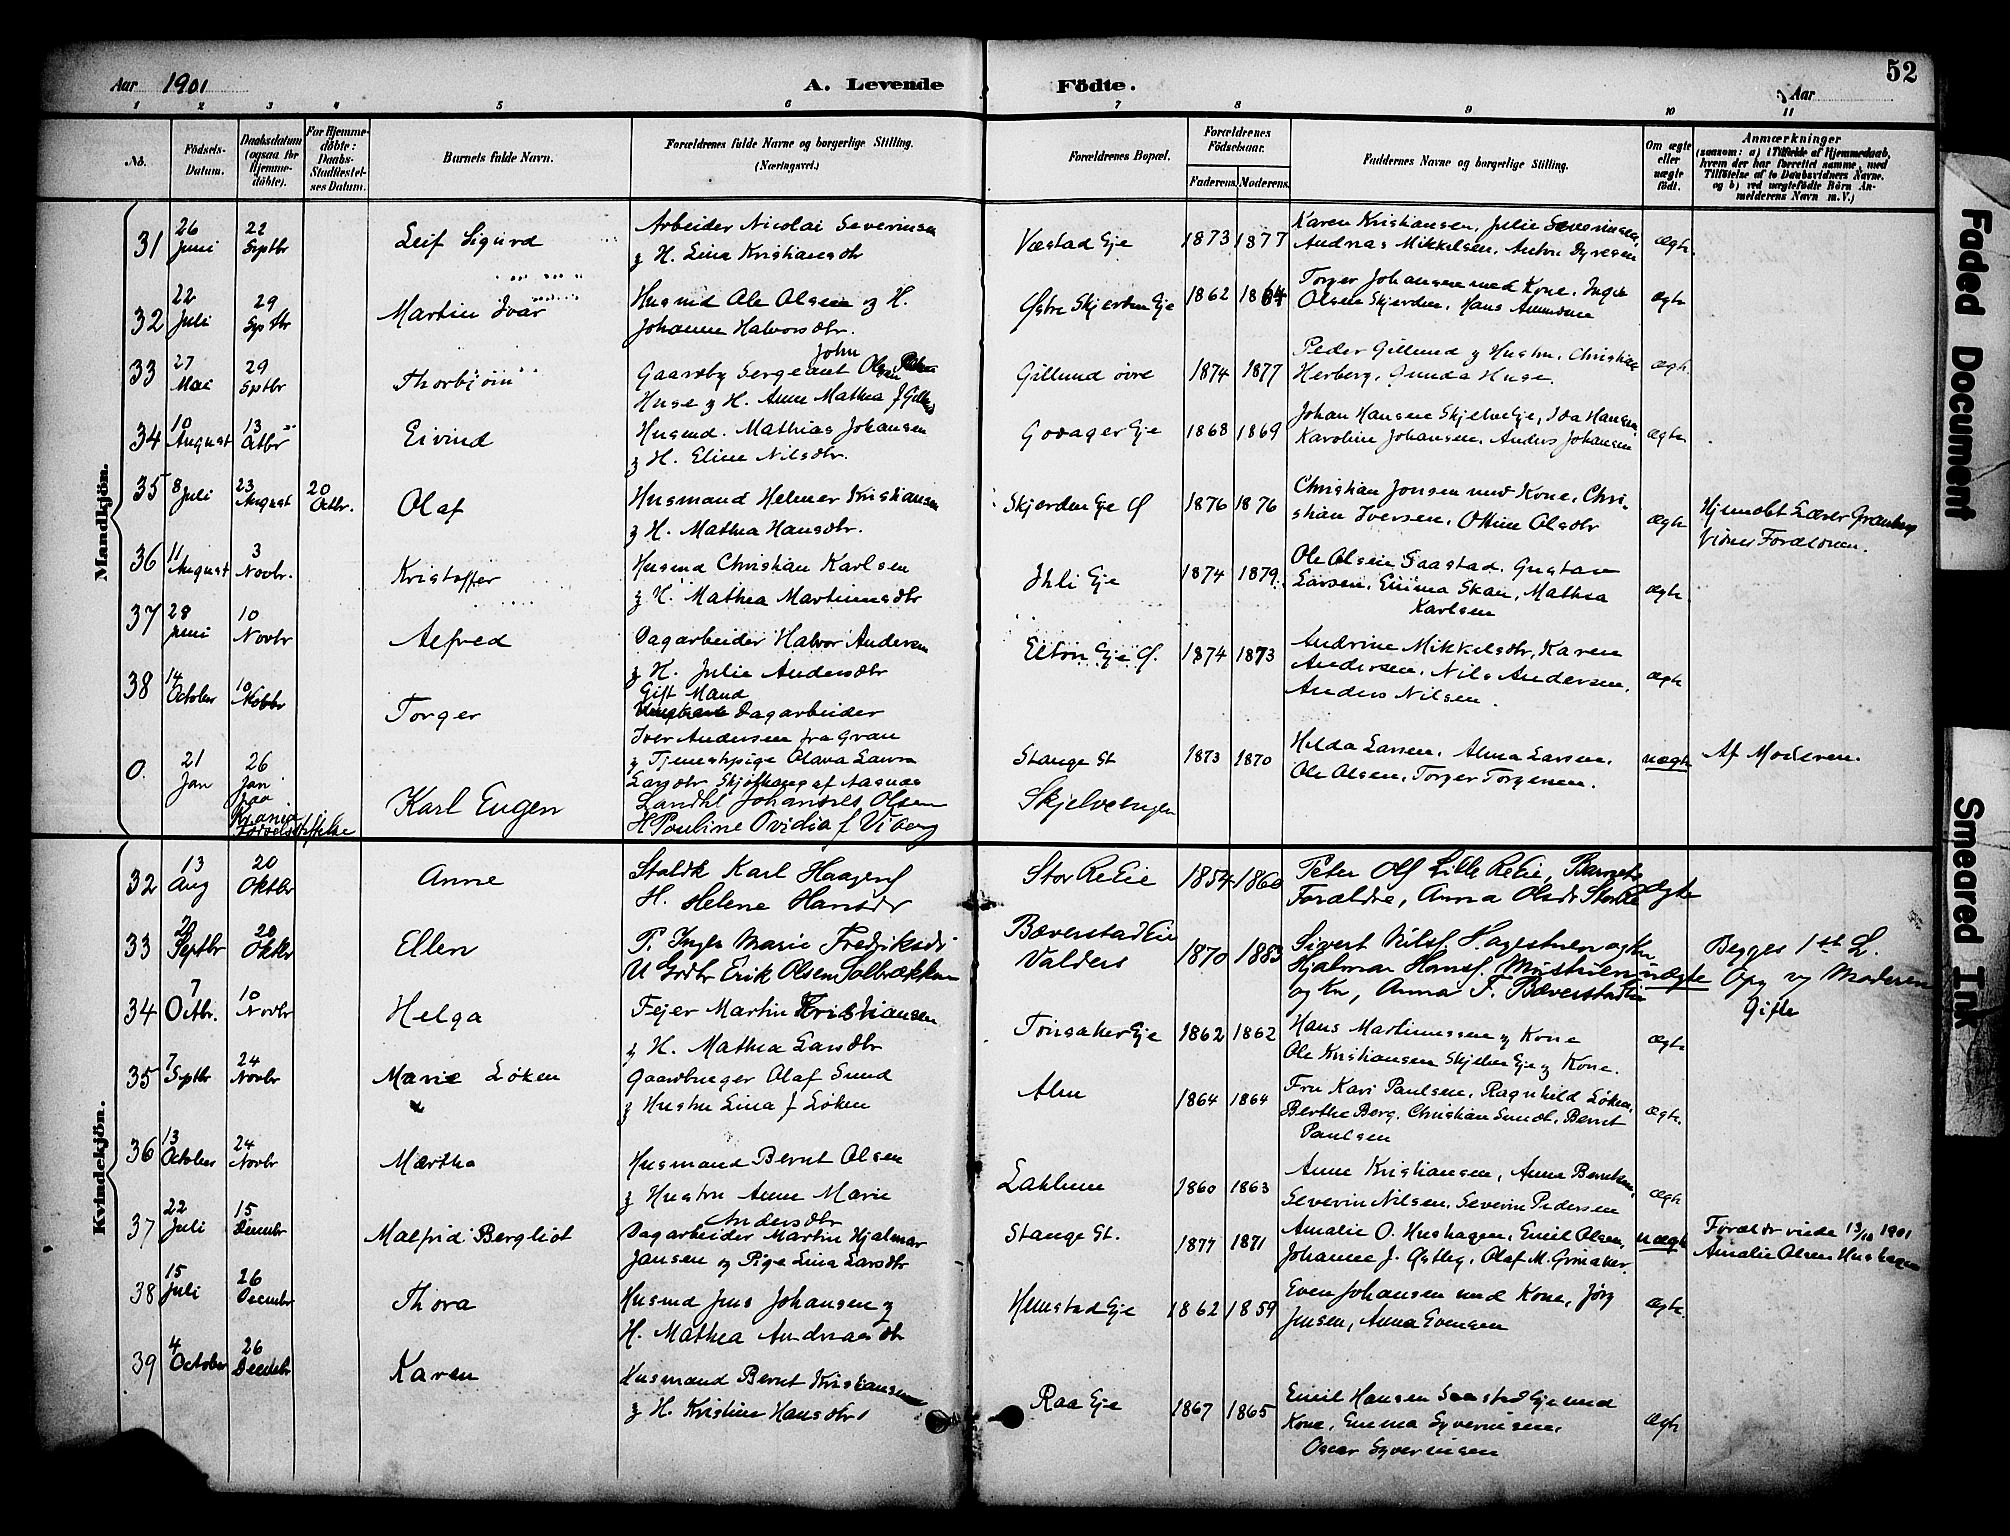 Aar 1901
A. Levende
Födte.
Aar
52
1 2 3 4 5 6 7 8 9 10 11
No.
Födsels-Datum.
Daabsdatum (ogsaa for Hjemme-döbte).
For Hjemme-döbte: Daabs-Stadfæstel-ses Datum.
Barnets fulde Navn.
Forældrenes fulde Navne og borgerlige Stilling. (Næringsvei.)
Forældrenes Bopæl.
Forældrenes Födselsaar.
Faderens. Moderens.
Faddernes Navne og borgerlige Stilling.
Om ægte eller uægte födt.
Anmærkninger
(saasom: a) i Tilfælde af Hjemmedaab, hvem der har forrettet samme, med Tilföielse af to Daabsvidners Navne, og b) ved uægtefödte Börn An-melderens Navn m.V.)
Mandkjön.
31 26 Juni 22 Septbr Leif Sigurd
Arbeider Nicolai Severinsen
& H. Lina Kristiansdtr
Væstad Eje 1873 1877
Karen Kristiansen, Julie Severinsen,
Andreas Mikkelsen, Anton Dyresen
ægte.
32 22 Juli 29 Septbr Martin Ivar
Husmd Ole Olsen og H.
Johanne Halvorsdtr.
Østre Skjerden Eje 1862 1864
Torger Johansen med Kone, Inger
Olsen Skjerden, Hans Amundsen
ægte
33 27 Mai 29 Septbr Thorbjörn
John
Gaardby Sergeant Olsen
Huse & H. Anne Mathea f Gillund
Gillund övre 1874 1877
Peder Gillund & Hustru, Christian
Herberg, Gunda Huse.
ægte.
34 10 August 13 Octbr Eivind
Husmd. Mathias Johansen
& H. Eline Nilsdtr.
Godager Eje 1868 1869
Johan Hansen Skjelve Eje, Ida Hansen,
Karoline Johansen, Anders Johansen
ægte
35 8 Juli 23 August 20 Octbr. Olaf
Husmand Helmer Kristiansen
& H. Mathea Hansdtr.
Skjerden Eje Ø 1876 1876
Christian Jonsen med Kone, Chri-
stian Iversen, Ottine Olsdtr
ægte
Hjemdøbt Lærer Granberg
Vidner Forældrene.
36 11 August 3 Novbr. Kristoffer
Husmd Christian Karlsen
& H. Mathea Martinusdtr
Ihli Eje 1874 1879.
Ole Olsen Saastad, Gustav
Larsen, Emma Skau, Mathea
Karlsen
ægte.
37 28 Juni 10 Novbr Alfred
Dagarbeider Halvor Andersen
& H. Julie Andersdtr
Elton Eje Ø. 1874 1873
Andrine Mikkelsdtr, Karen
Andersen, Nils Andersen,
Anders Nilsen.
ægte
38 14 October 10 Novbr Torger
Gift Mand
Dagarbeider
Iver Andersen fra Gran
& Tjenestpige Olava Laura
Larsdtr Skjøthaug af Aasnæs
Stange St 1873 1870
Hilda Larsen, Alma Larsen,
Ole Olsen, Torger Torgersen.
uægte
Af Moderen.
0. 21 Jan 26 Jan paa Kr.ania Fødselsstiftelse Karl Eugen
Landhl Johannes Olsen
H Pouline Ovidia f Viberg
Skjelvetngen
Kvindekjön.
32 13 Aug 20 Oktbr Anne
Staldk Karl Haagens
H. Helene Hansdr
Stor Re Eie 1854 1860
Peter Ols Lille Re Eie, Barnets
Forældre, Anna Olsdr Stor Re
ægte
33 20 Septbr 20 Oktbr Ellen
P. Inger Marie Fredriksdr
U Grdbr Erik Olsen Solbrækken
Bæverstad Eie
Valders
1870 1883
Sivert Nils. Hagestuen og Kn,
Hjalmar Hans. Mostuen
og Kn, Anna F. Bæverstad Eie
uægte
Begges 1st L.
Opg og Moderen
Gifte
34 7 Octbr. 10 Novbr Helga
Fejer Martin Kristiansen
& H. Mathea Larsdtr
Tønsaker Eje 1862 1862
Hans Martinussen & Kone
Ole Kristiansen Skjelve Eje & Kone.
ægte
35 7 Septbr 24 Novbr Marie Løken
Gaardbruger Olaf Sund
& Hustru Lina f Løken
Alm 1864 1864
Fru Kari Paulsen, Ragnhild Løken,
Berthe Berg, Christian Sundt, Bernt
Paulsen
ægte.
36 13 October 24 Novbr Mærtha
Husmand Bernt Olsen
& Hustru Anne Marie
Andersdtr
Laklum 1860 1863
Anne Kristiansen, Anne Berntsen,
Severin Nilsen, Severin Pedersen
ægte
37 22 Juli 15 Decmbr Malfrid Bergliot
Dagarbeider Martin Hjalmar
Jansen og Pige Lina Larsdtr
Stange St. 1877 1871
Amalie O. Hushagen, Emil Olsen,
Johanne J. Østby, Olaf M. Grinaker.
uægte
Forældr viede 13/10 1901
Amalie Olsen Hushagen
38 15 Juli 26 Decmbr Thora
Husmd Jens Johansen &
H. Mathea Andreasdtr
Hemstad Eje 1862 1859
Even Johansen med Kone, Jörg
Jensen, Anna Evensen
ægte
39 4 October 26 Decmbr Karen
Husmand Bernt Kristiansen
& H. Kristine Hansdtr
Raa Eje 1867 1865
Emil Hansen Saastad Eje med
Kone, Emma Syvertsen,
Oscar Syversen
ægte
Faded Document
Smeared Ink